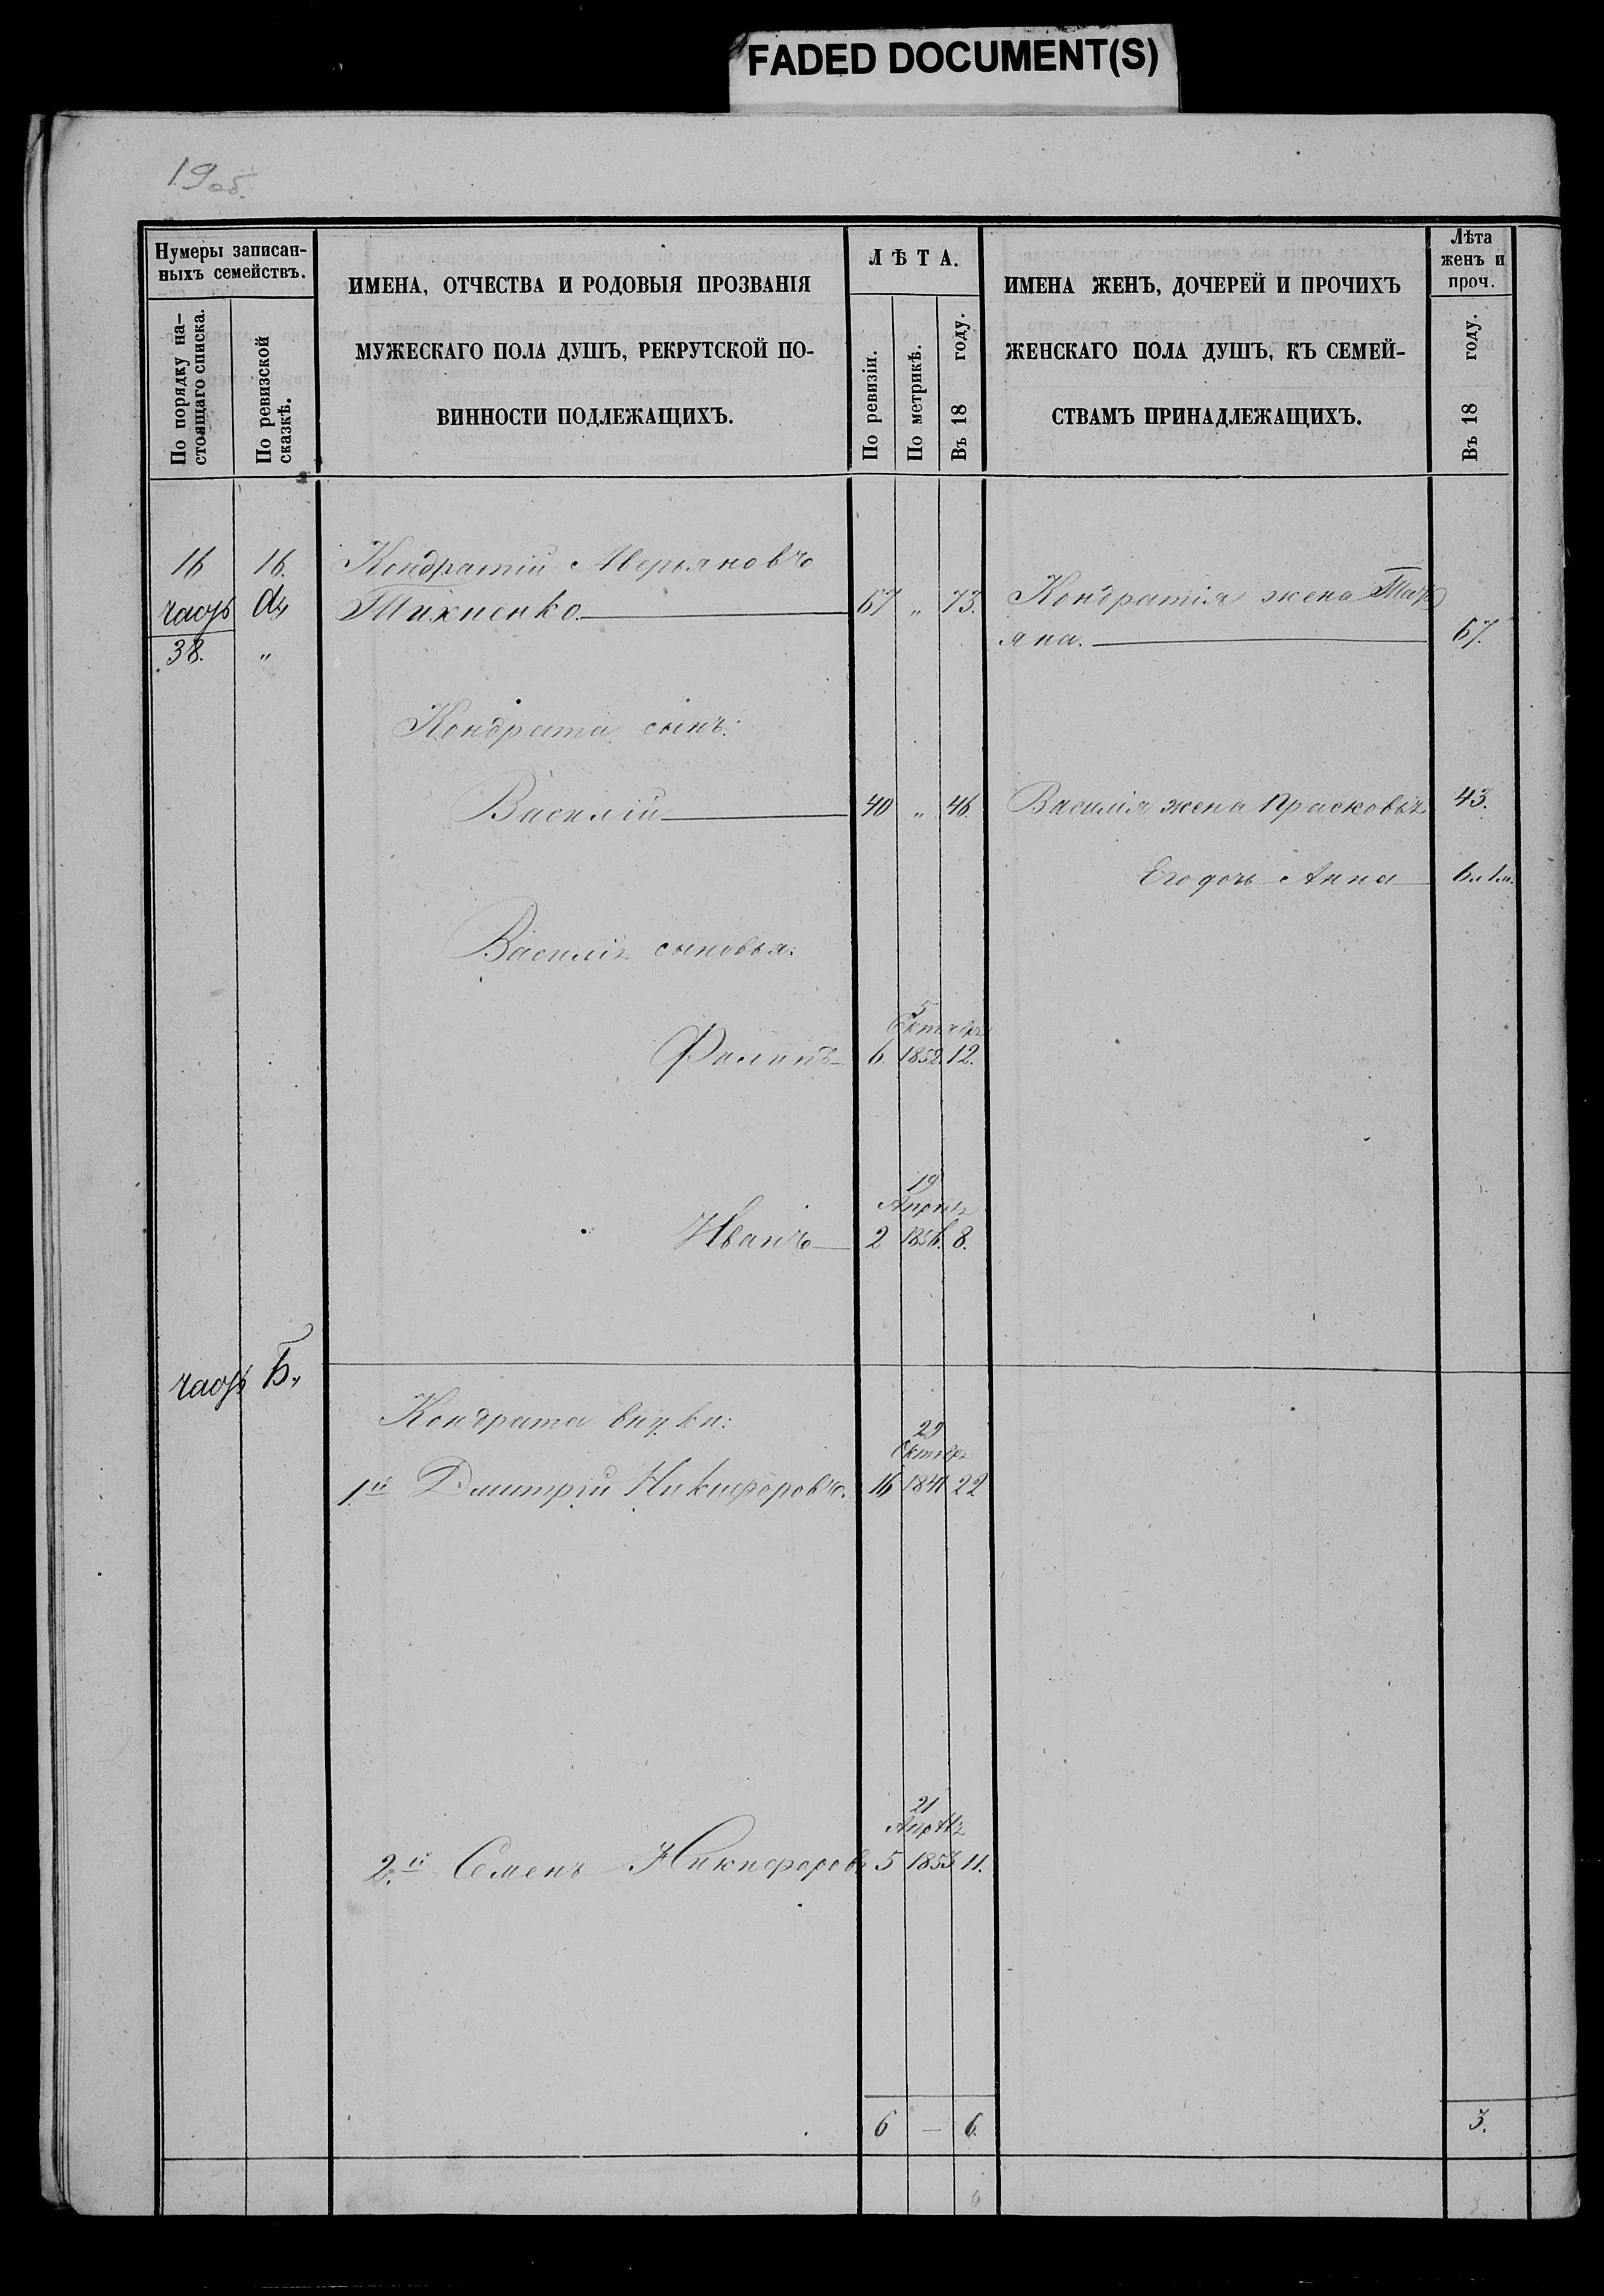 FADED DOCUMENT(S)
19 об.
Нумеры записан-
ныхъ семействъ.
По порядку на-
стоящаго списка.
По ревизской
сказкѣ.
ИМЕНА, ОТЧЕСТВА И РОДОВЫЯ ПРОЗВАНІЯ
МУЖЕСКАГО ПОЛА ДУШЪ, РЕКРУТСКОЙ ПО-
ВИННОСТИ ПОДЛЕЖАЩИХЪ.
ЛѢТА.
По ревизіи.
По метрикѣ.
Въ 18 году.
ИМЕНА ЖЕНЪ, ДОЧЕРЕЙ И ПРОЧИХЪ
ЖЕНСКАГО ПОЛА ДУШЪ, КЪ СЕМЕЙ-
СТВАМЪ ПРИНАДЛЕЖАЩИХЪ.
Лѣта
женъ и
проч.
Въ 18 году.
16 16. Кондратій Аверьяновъ
Тихненко. 67 " 73. Кондратія жена
38. " яна. 67.
Кондрата сынъ:
Василій 40 " 46. Василія жена Прасковья 43.
Его дочь Анна
Василія сыновья:
5
Октября
Филипъ 6. 1852. 12.
19
Апрѣля
Иванъ 2 1856. 8.
часть Б,
Кондрата внуки:
29
Октября
1й Дмитрій Никифоровъ. 16 1841 22
21
Апрѣля
2.й Семенъ Никифоровъ 5 1853 11.
6 — 6. 3.
6 3.